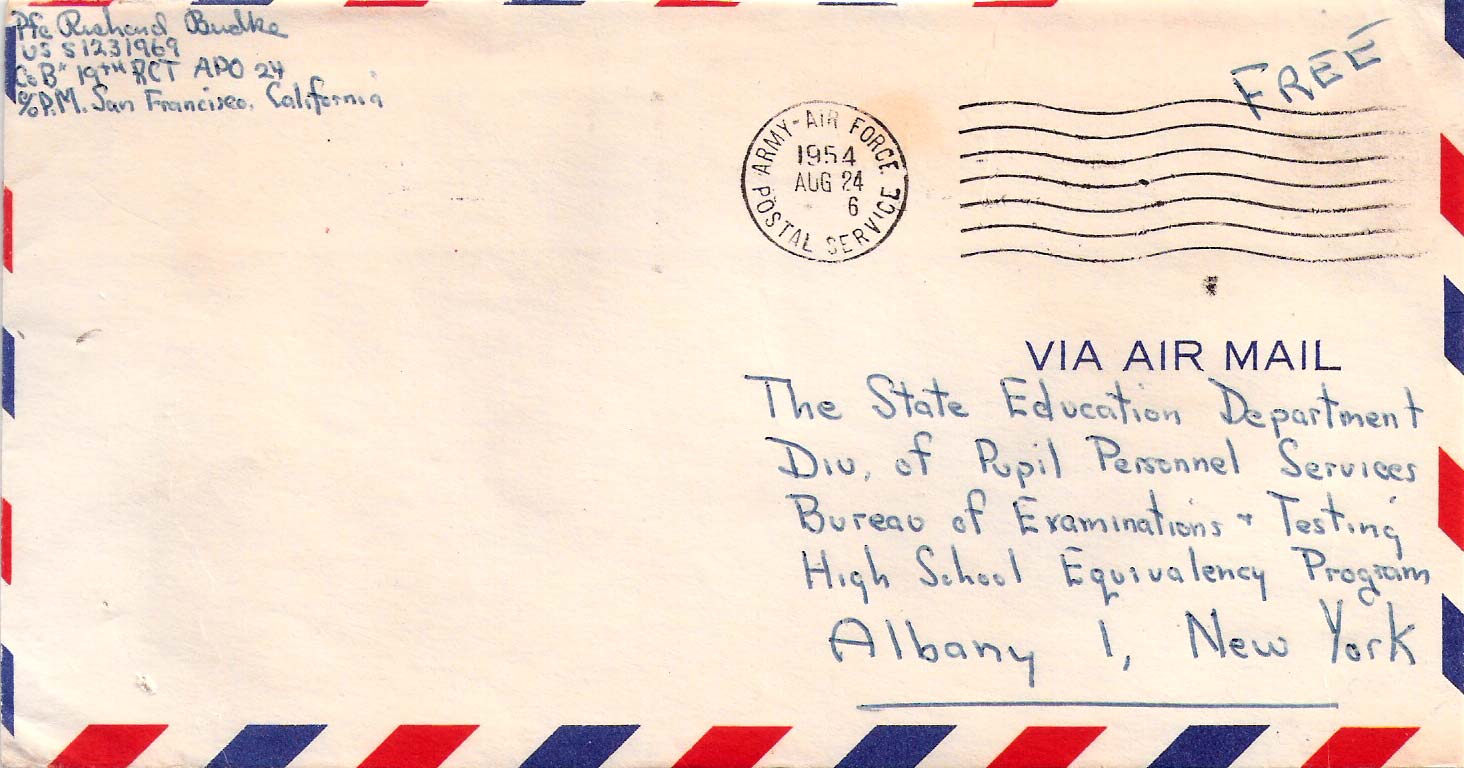 Pfc Richard Budke
US 51231969
Co B" 19TH RCT APO 24
c/o P.M. San Francisco, California
FREE
ARMY-AIR FORCE
1954
AUG 24
6
POSTAL SERVICE
VIA AIR MAIL
The State Education Department
Div. of Pupil Personnel Services
Bureau of Examinations + Testing
High School Equivalency Program
Albany 1, New York